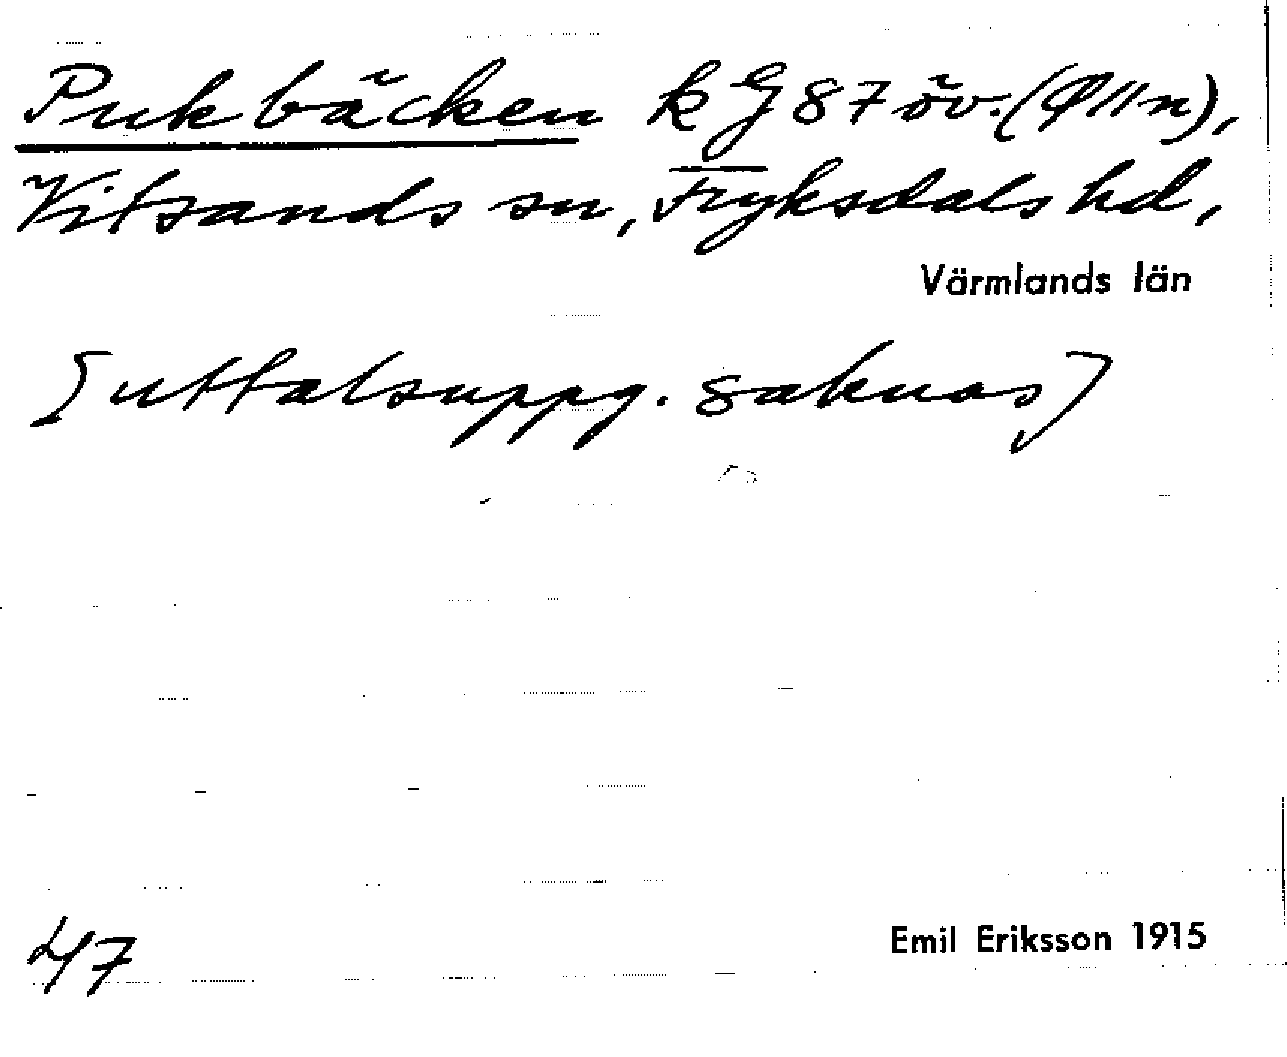 Pukbäcken k G 87 öv. (Ø 11 n),
Vitsands sn, Fryksdals hd,
Värmlands län
[uttalsuppg. saknas]
47
Emil Eriksson 1915